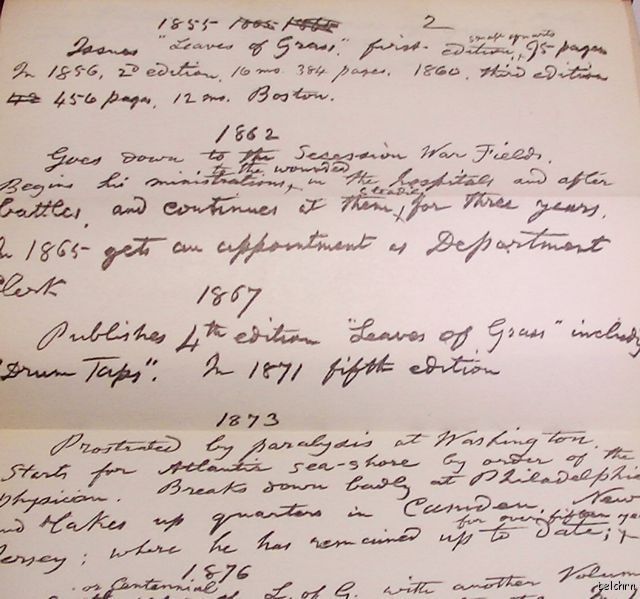 1855 1865 1865 2
small quarto
Issues "Leaves of Grass". first edition, 95 pages
In 1856, 2d edition, 16 mo. 384 pages. 1860, third edition
456 pages, 12 mo. Boston.
1862
Goes down to the Secession War Fields.
to the wounded
Begins his ministrations, in the hospitals and after
steadily
battles, and continues at them, for three years.
In 1865 gets an appointment as Department
Clerk
1867
Publishes 4th edition "Leaves of Grass" includg
"Drum Taps". In 1871 fifth edition
1873
Prostrated by paralysis at Washington.
Starts for Atlantic sea-shore by order of the
physician. Breaks down badly at Philadelphia
and takes up quarters in Camden, New
for over fifteen
Jersey; where he has remained up to date;
1876
or Centennial
L. of G. with another Volum
telchrn